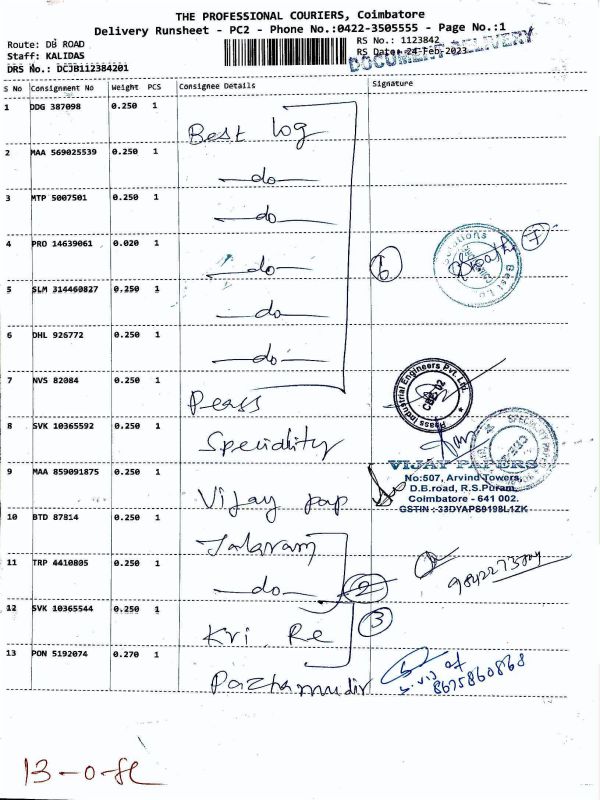 THE PROFESSIONAL COURIERS, Coimbatore
Delivery Runsheet - PC2 - Phone No.:0422-3505555 - Page No.:1
Route: DB ROAD
RS No.: 1123842
Staff: KALIDAS
RS Date: 24-Feb-2023
DOCUMENT DELIVERY
DRS No.: DCJB112384201
S No Consignment No Weight PCS Consignee Details Signature
1 DDG 387098 0.250 1 Best log
2 MAA 569025539 0.250 1 —do—
3 MTP 5007501 0.250 1 —do—
4 PRO 14639061 0.020 1 —do—
5 SLM 314460827 0.250 1 —do—
6 DHL 926772 0.250 1 —do—
6
7
7 NVS 82084 0.250 1 Peass
Peass Industrial Engineers Pvt. Ltd.
CBE-02
8 SVK 10365592 0.250 1 Speciality
9 MAA 859091875 0.250 1 Vijay pap
VIJAY PAPERS
No:507, Arvind Towers,
D.B.road, R.S.Puram,
Coimbatore - 641 002.
GSTIN : 33DYAPS9198L1ZK
10 BTD 87814 0.250 1 Jalaram
11 TRP 4410805 0.250 1 —do—
2
12 SVK 10365544 0.250 1 Kri Re
3
13 PON 5192074 0.270 1 Pazhamudir
8675860868